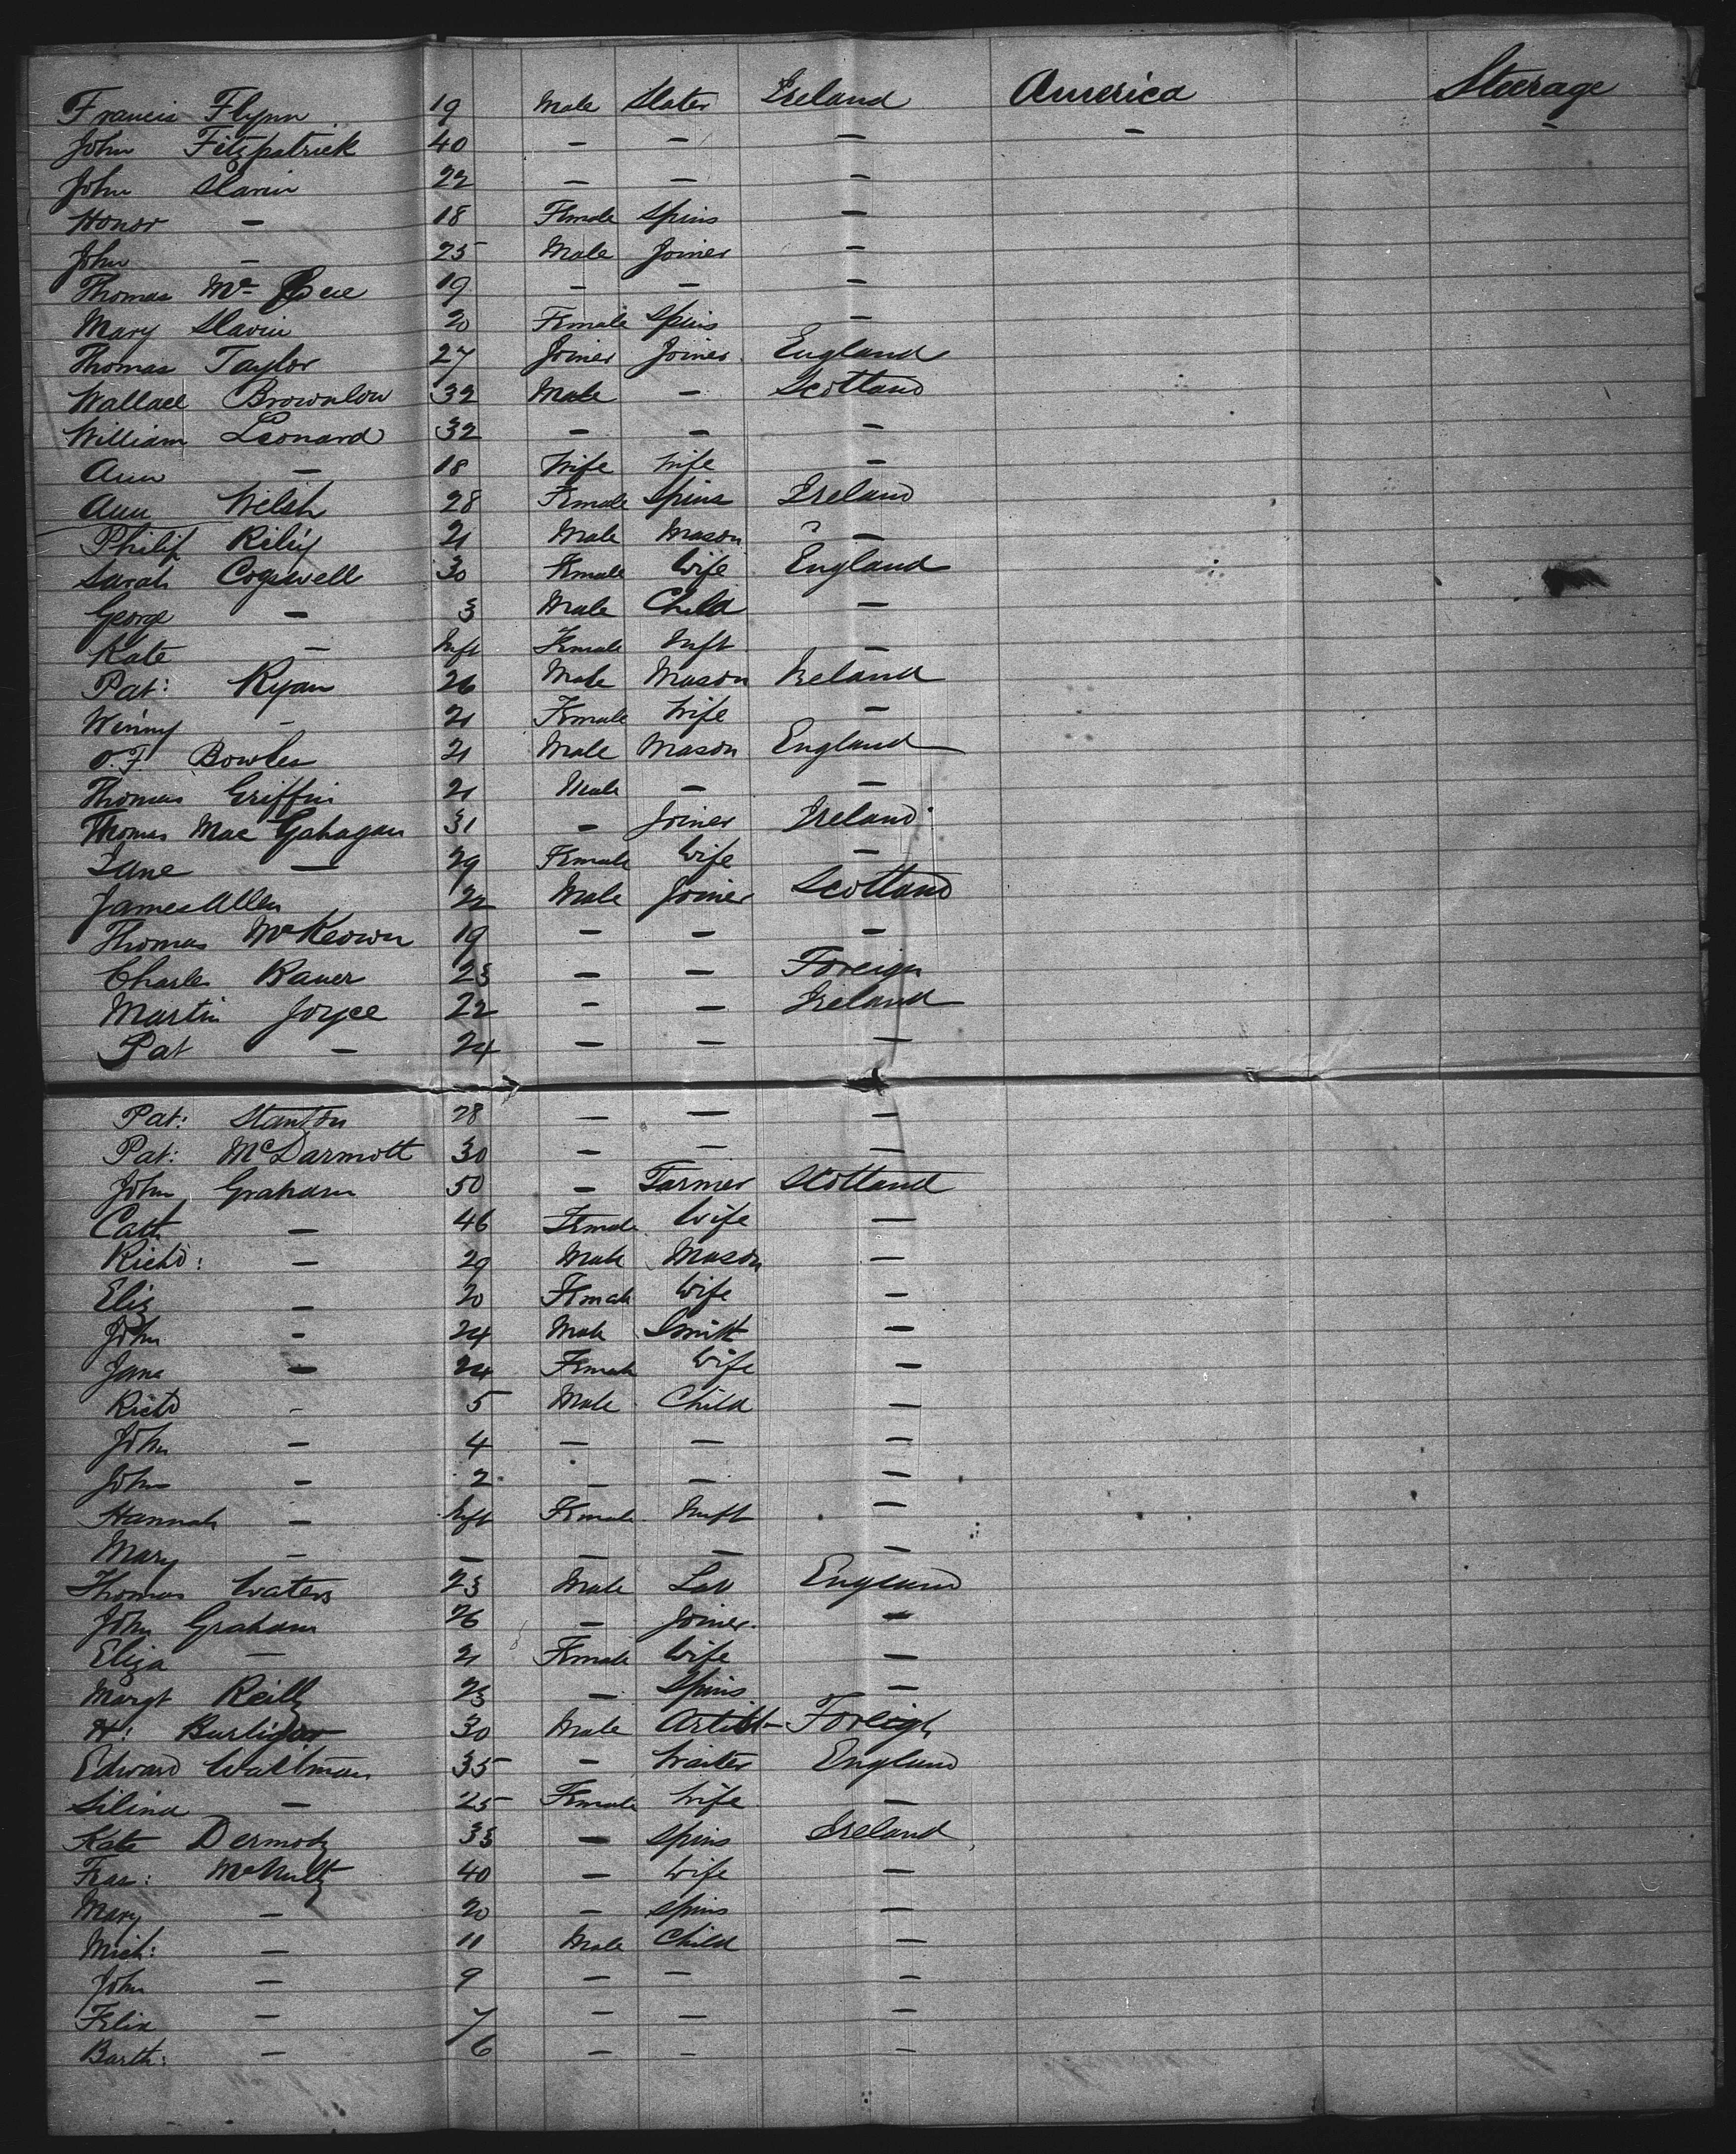 Francis Flynn 19 Male Slater Ireland America Steerage
John Fitzpatrick 40 — — — — —
John Slavin 22 — — —
Honor — 18 Female Spins —
John — 25 Male Joiner —
Thomas Mc 19 — — —
Mary Slavin 20 Female Spins —
Thomas Taylor 27 Joiner Joiner England
Wallace Brownlow 32 Male — Scotland
William Leonard 32 — — —
Ann — 18 Wife Wife —
Ann Welsh 28 Female Spins Ireland
Philip Riley 21 Male Mason —
Sarah Cogswell 30 Female Wife England
George — 3 Male Child —
Kate — Inft Female Inft —
Pat: Ryan 26 Male Mason Ireland
Winny — 21 Female Wife —
O.F. Bowles 21 Male Mason England
Thomas Griffin 21 Male — —
Thomas Mac Gahagan 31 — Joiner Ireland
Jane — 29 Female Wife —
James Allen 22 Male Joiner Scotland
Thomas McKeown 19 — — —
Charles Bauer 23 — — Foreign
Martin Joyce 22 — — Ireland
Pat — 24 — — —
Pat: Stanton 28 — — —
Pat: McDarmott 30 — — —
John Graham 50 — Farmer Scotland
Cath — 46 Female Wife —
Richd: — 29 Male Mason —
Eliz — 20 Female Wife —
John — 24 Male Smith —
Jane — 24 Female Wife —
Richd — 5 Male Child —
John — 4 — — —
John — 2 — — —
Hannah — Inft Female Inft —
Mary — — — — —
Thomas Waters 23 Male Lab England
John Graham 26 — Joiner —
Eliza — 21 Female Wife —
Margt Reilly 23 — Spins —
H: 30 Male Artist Foreign
Edward Waltman 35 — Waiter England
Silina — 25 Female Wife —
Kate Dermody 33 — Spins Ireland
Fras: McNulty 40 — Wife —
Mary — 20 — Spins —
Mich: — 11 Male Child —
John — 9 — — —
Felix — 7 — — —
Barth: — 6 — — —